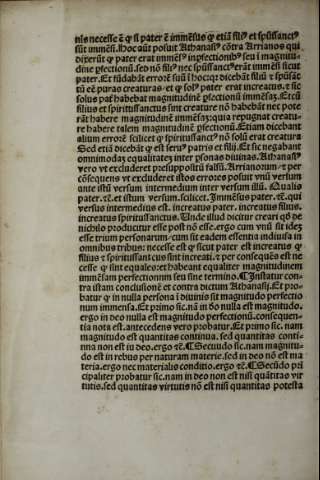 nis necesse ē ꝙ si pater ē immēsus ꝙ etiā fili⁹ et spūssanct⁹
sūt immēsi. Hoc aūt posuit Athanasi⁹ cōtra Arrianos qui
dixerūt ꝙ pater erat immēs⁹ inꝑfectionib⁹ seu ī magnitu-
dine ꝑfectionū. sed nō fili⁹ nec spūssanct⁹ erāt immēsi sicut
pater. Et fūdabāt errorē suū ī hoc: qꝛ dicebāt filiū ⁊ spūsāc
tū eē puras creaturas. et ꝙ sol⁹ pater erat increatus. ⁊ sic
solus pať habebat magnitudinē ꝑfectionū immēsaꝫ. Et cū
filius et spiritussanctus sint creature nō habebāt nec pote
rāt habere magnitudinē immēsaꝫ: quia repugnat creatu-
re habere talem magnitudinē ꝑfectionū. Etiam dicebant
alium errorē scilicet ꝙ spiritussanct⁹ nō solū erat creatura
Sed etiā dicebāt ꝙ est seru⁹ patris et filij. Et sic negabant
omnimodaꝫ equalitateꝫ inter ꝑsonas diuinas. Athanasi⁹
vero vt excluderet p̄suppositū falsū. Arrianorum. ⁊ et per
cōsequens vt excluderet istos errores posuit vnū versum
ante istū versum intermedium inter versum illū. Qualis
pater. ꝛc̄. et istum versum. scilicet. Immēsus pater. ꝛc̄. qui
versus intermedius est. increatus pater. increatus filius.
increatus spiritussanctus. Unde illud dicitur creari qd̄ de
nichilo producitur esse post nō esse. ergo cum vnū sit ideꝫ
esse trium personarum: cum sit eadem essentia indiuisa in
omnibus tribus: necesse est ꝙ sicut pater est increatus ꝙ
filius ⁊ spiritussanctus sint increati. ⁊ per consequēs est ne
cesse ꝙ sint equales: et habeant equaliter magnitudinem
immēsam perfectionum seu sine termino. ¶ Instatur con-
tra istam conclusionē et contra dictum Athanasij. Et pro-
batur ꝙ in nulla persona ī diuinis sit magnitudo perfectio
num immensa. Et primo sic. nā in d̄o nulla est magnitudo.
ergo in deo nulla est magnitudo perfectionū. consequen-
tia nota est. antecedens vero probatur. Et primo sic. nam
magnitudo est quantitas continua. sed quantitas conti-
nua non est iu deo. ergo ꝛc̄. ¶ Secuudo sic. nam magnitu-
do est in rebus per naturam materie. sed in deo nō est ma
teria. ergo nec materialis conditio. ergo ꝛc̄. ¶ Secūdo pri
cipaliter probatur sic. nam in deo non est nisi quātitas vir
tutis. sed quantitas virtutis nō est nisi quantitas potesta